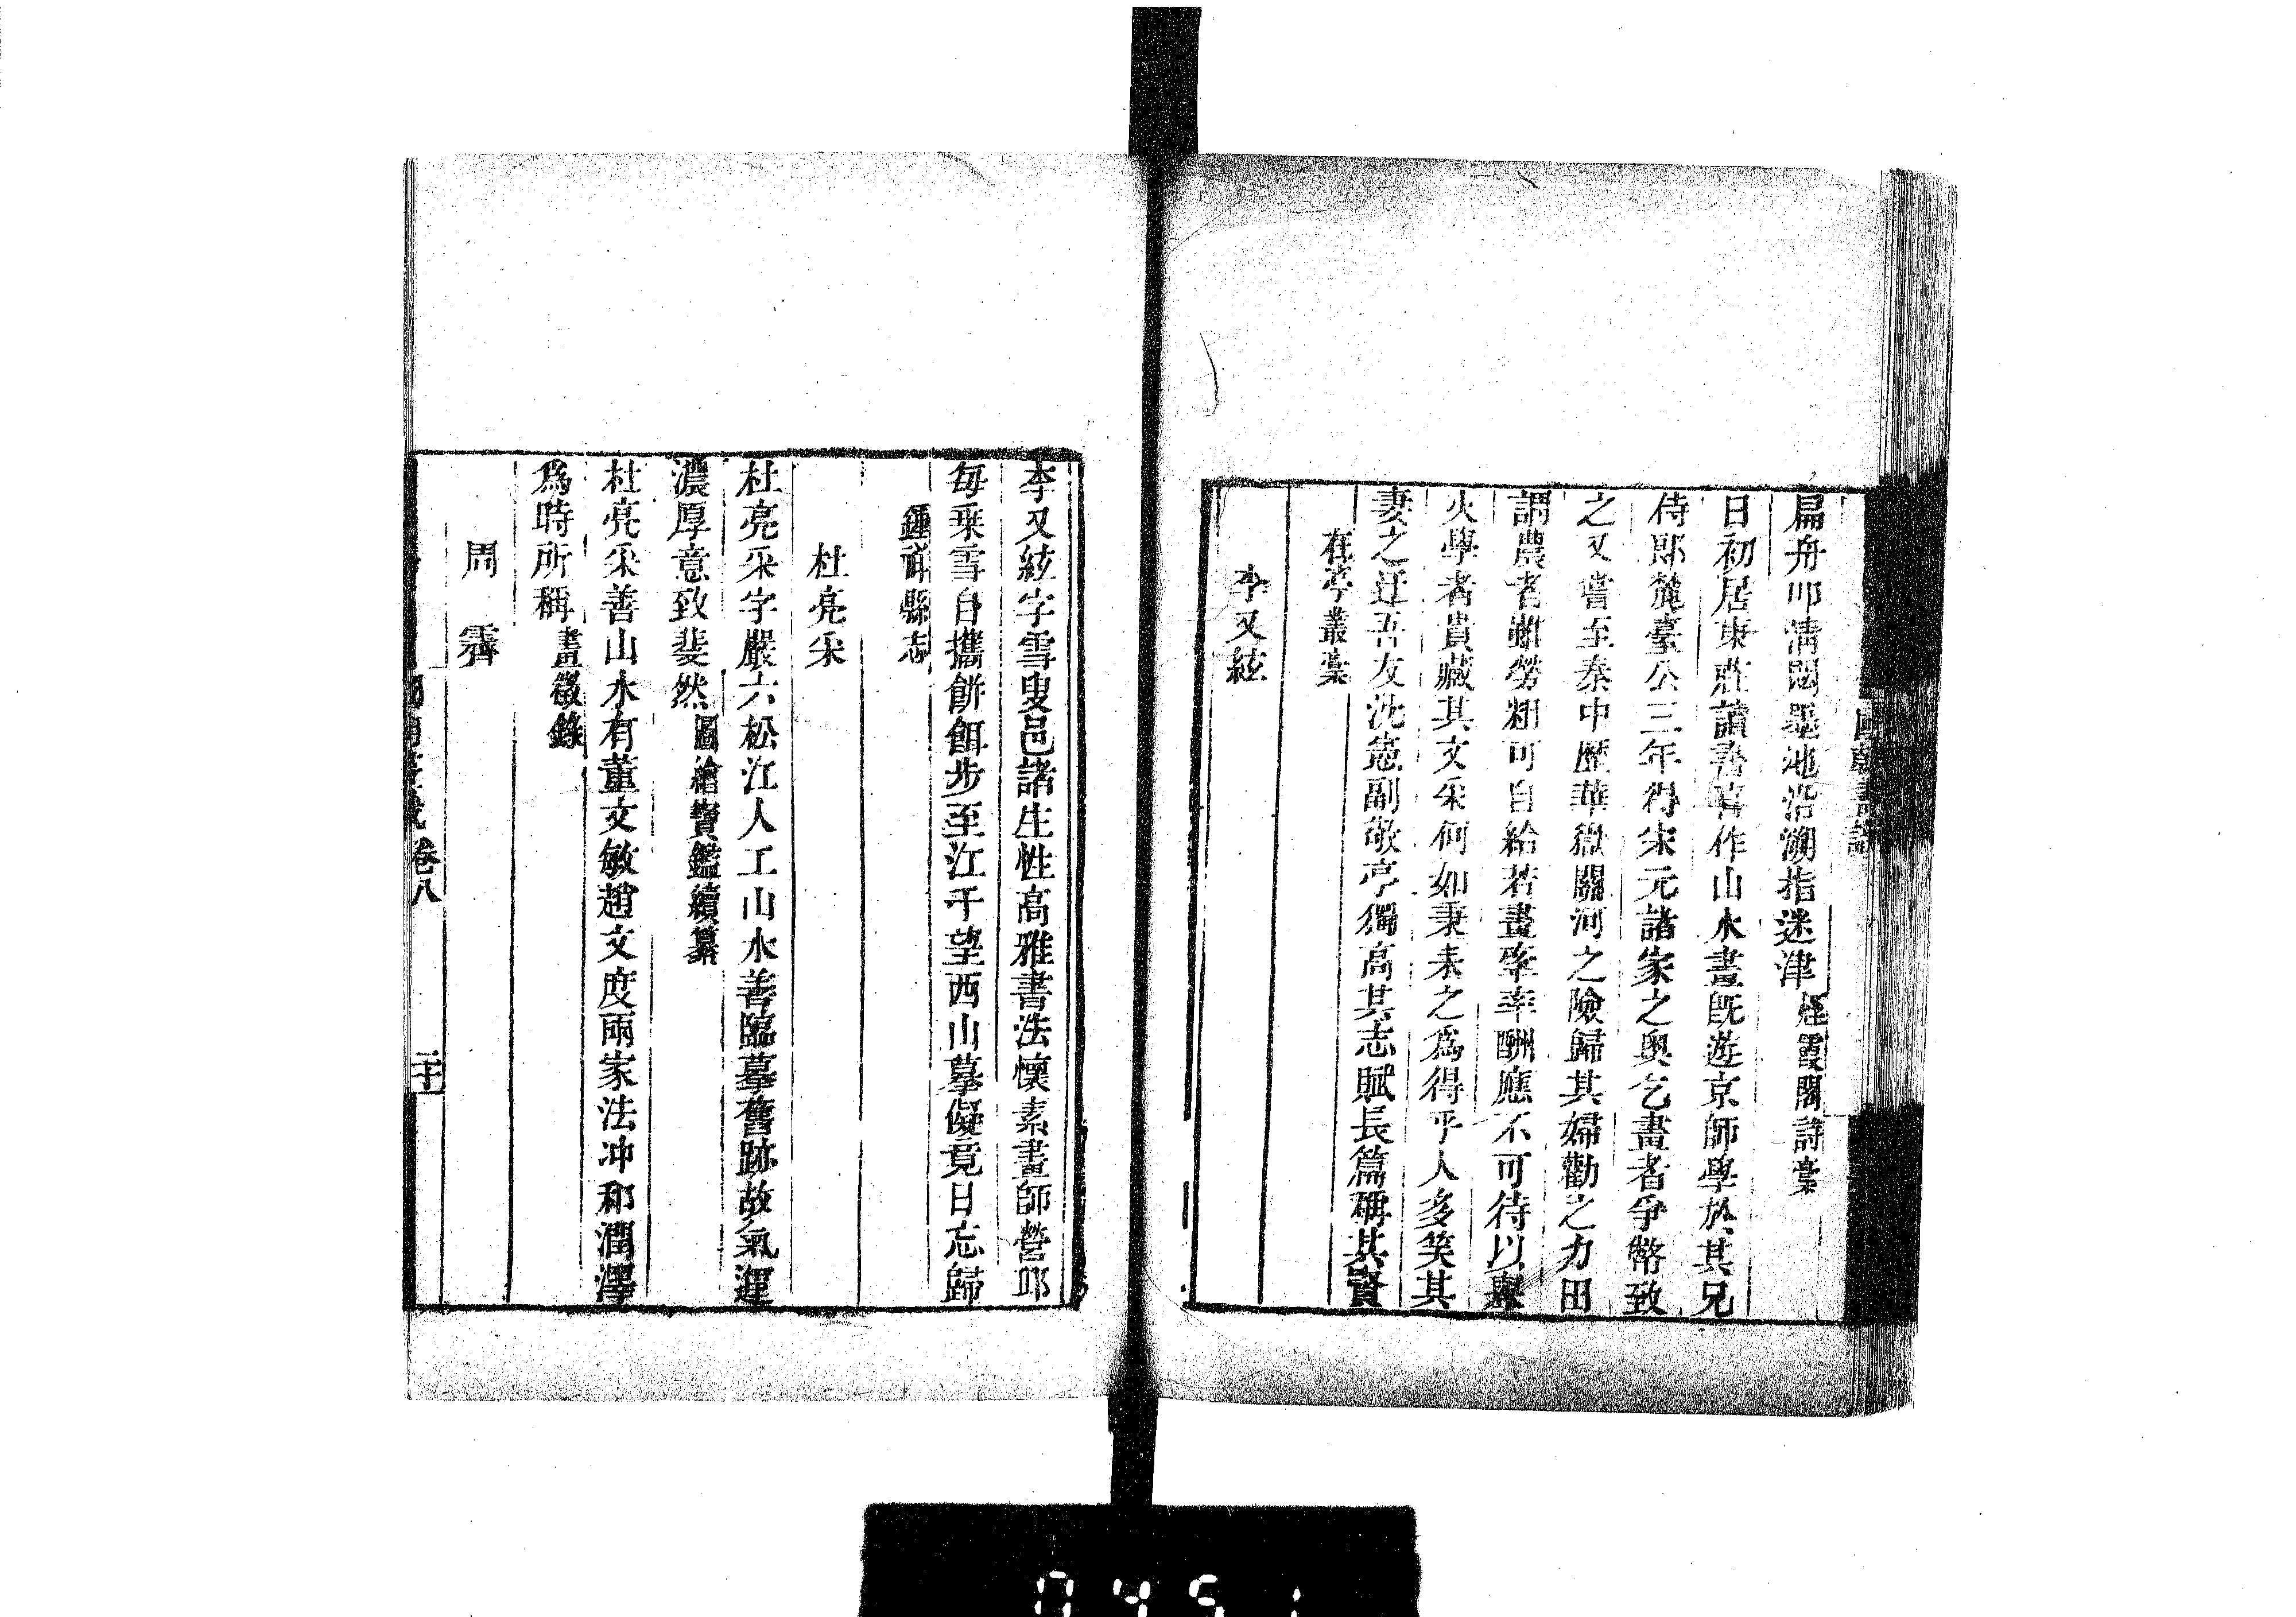 扁舟叩清閟墨池沿溯指迷津煙霞閣詩稾
日初居東莊讀書暇作山水畫旣遊京師學於其兄
侍郎麓臺公三年得宋元諸家之奧乞畫者爭幣致
之又嘗至秦中歷華嶽關河之險歸其婦勸之力田
謂農者雖勞粗可自給若畫率率酬應不可待以舉
火學者貴藏其文采何如秉耒之爲得乎人多笑其
妻之迂吾友沈憲副敬亭獨高其志賦長篇稱其賢
在亭叢稾
李又絃
李又絃字雪叟邑諸生性高雅書法懷素畫師營邱
每乘雪自攜餅餌步至江干望西山摹儗竟日忘歸
鍾祥縣志
杜亮采
杜亮采字嚴六松江人工山水善臨摹舊跡故氣運
濃厚意致斐然圖繪寶鑑續纂
杜亮采善山水有董文敏趙文度兩家法冲和潤澤
爲時所稱畫徵錄
周霽
卷八
0451